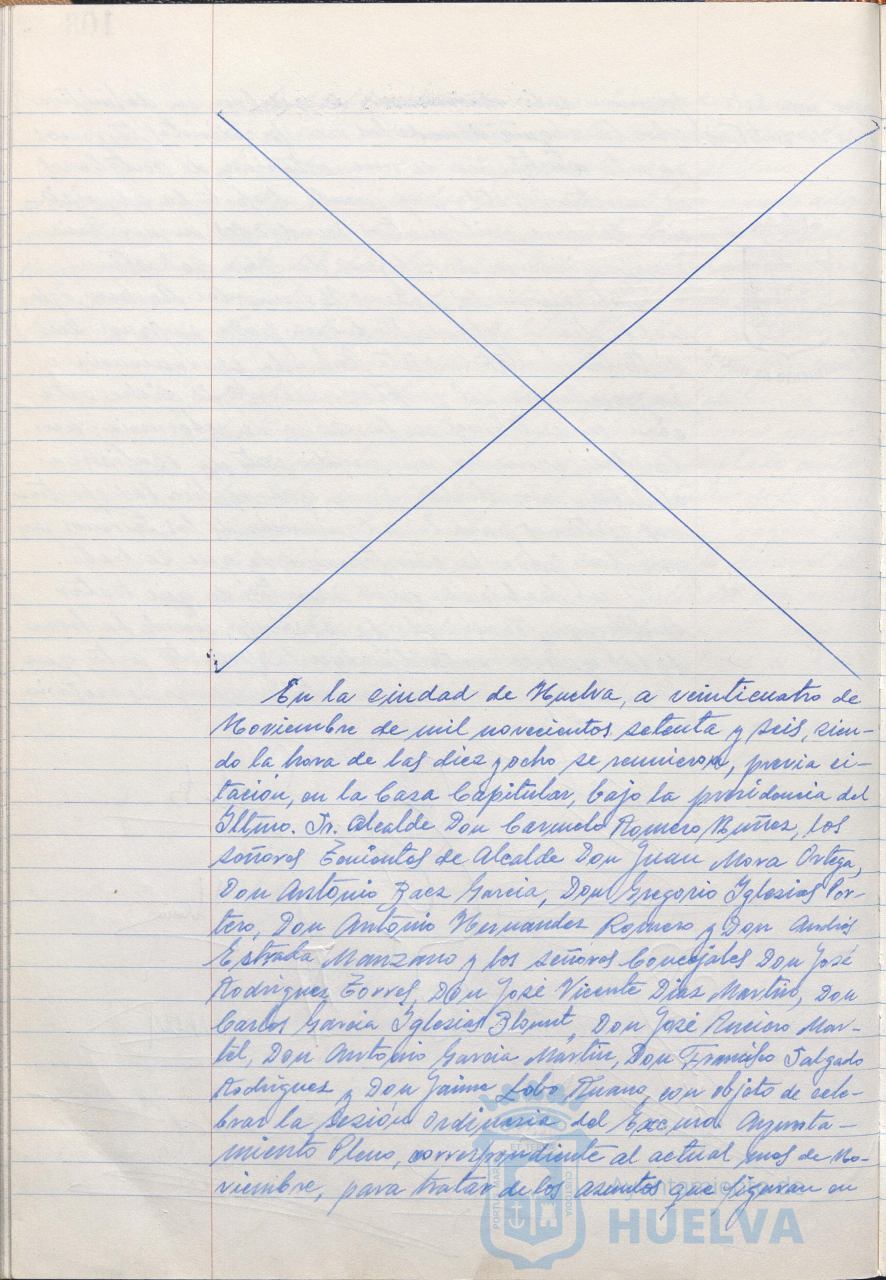 En la ciudad de Huelva, a veinticuatro de
Noviembre de mil novecientos setenta y seis, sien-
do la hora de las diez y ocho se reunieron, previa ci-
tación, en la Casa Capitular, bajo la presidencia del
Iltmo. Sr. Alcalde Don Carmelo Romero Núñez, los
señores Tenientes de Alcalde Don Juan Mora Ortega,
Don Antonio Baez Garcia, Don Gregorio Iglesias Por-
tero, Don Antonio Hernandez Romero y Don Andrés
Estrada Manzano y los señores Concejales Don José
Rodriguez Torres, Don José Vicente Diaz Martin, Don
Carlos Garcia Iglesias, Don José Mar-
tel, Don Antonio Garcia Martin, Don Francisco Salgado
Rodriguez y Don Jaime Lobo Ruano, con objeto de cele-
brar la sesión ordinaria del Excmo. Ayunta-
miento Pleno, correspondiente al actual mes de No-
viembre, para tratar de los asuntos que figuran en
Ayuntamiento de
HUELVA
PORTUS MARIS
ET TERRAE
CUSTODIA